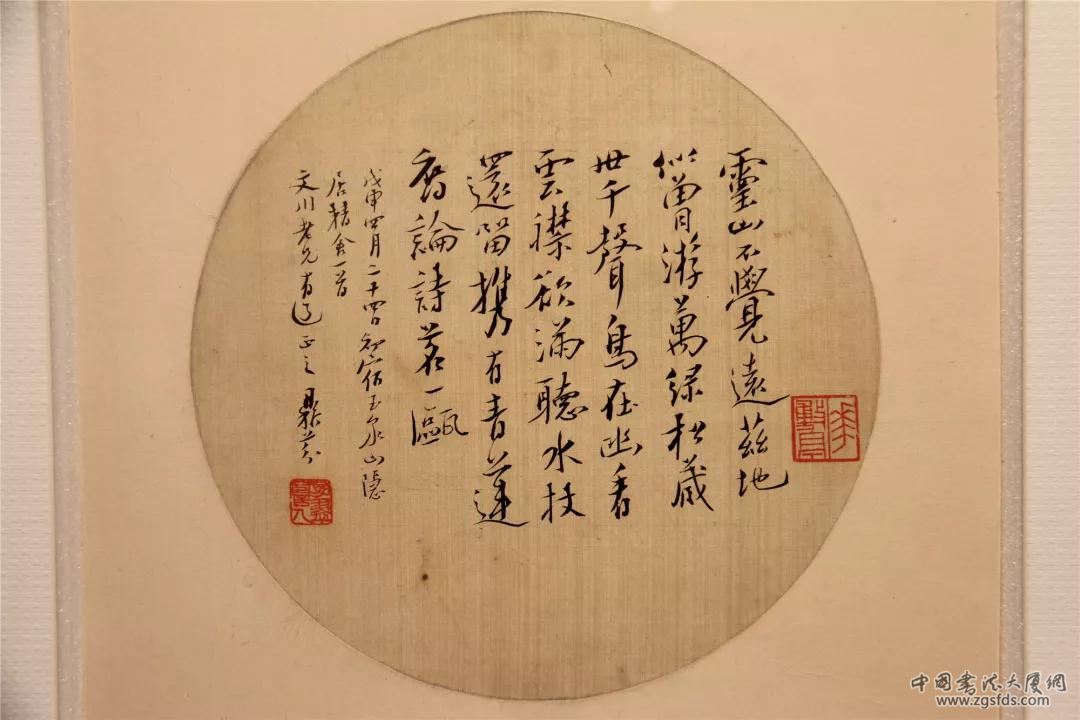 靈山不覺遠茲地
似曾游萬綠松藏
世千聲鳥在幽看
雲襟欲滿聽水杖
還留攜有青蓮
喬論詩茗一甌
戊申四月二十四日初宿玉泉山隱
居精舍一首
文川老兄有道正之
中國書法大厦網
www.zgsfds.com